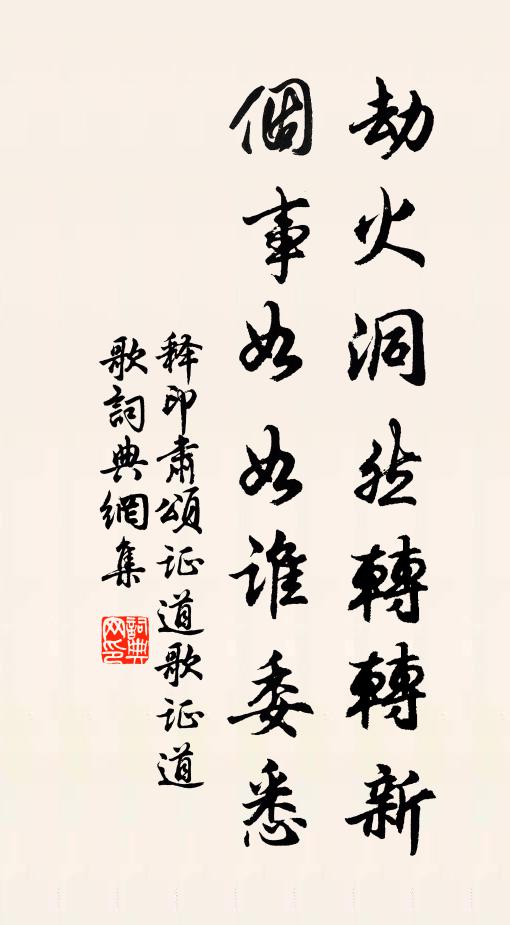 劫火洞然轉轉新
個事如如誰委悉
释印肅頌证道歌证道
歌詞典網集
詞典网印